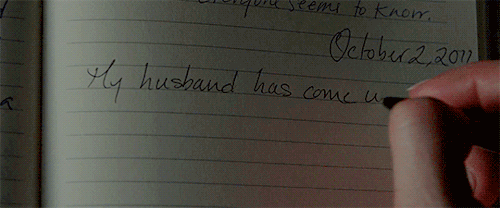 everyone seems to know.
October 2, 2011
My husband has come u